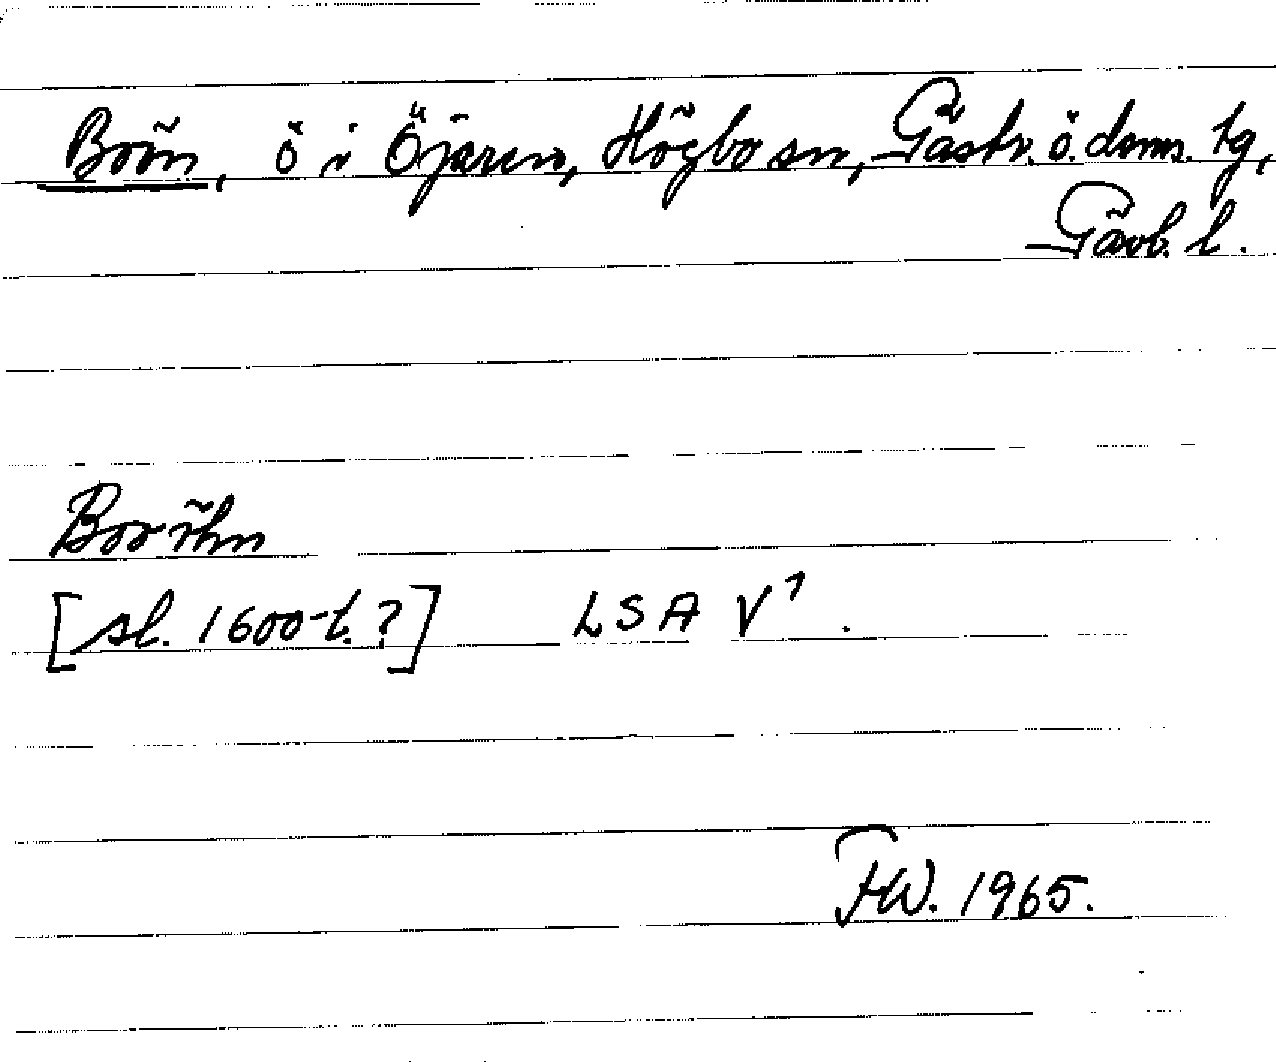 Boön, ö i Öjaren, Högbo sn, Gästr. ö. doms. tg,
Gävb. l.
Booöhn
[sl. 1600-t.?] LSA V¹.
FW. 1965.